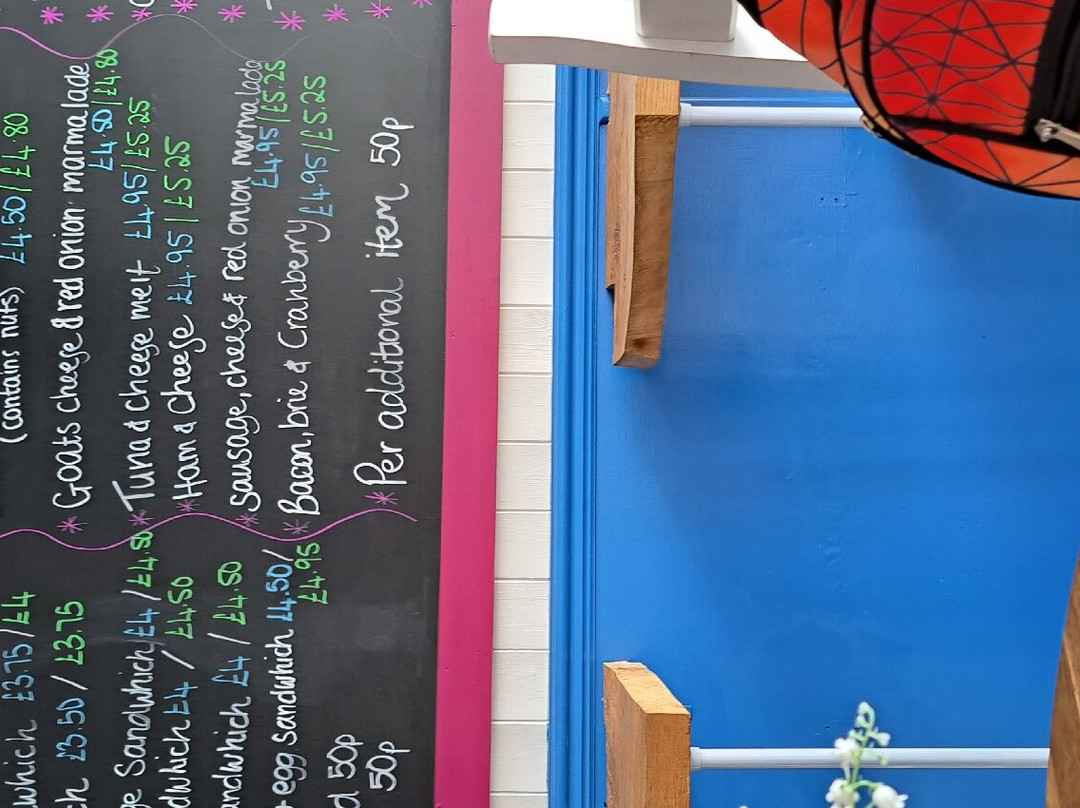 which £3.75/£4
£3.50 / £3.75
Sandwhich £4 / £4.50
£4 / £4.50
£4 / £4.50
egg sandwhich £4.50/
£4.95
50p
50p
(contains nuts) £4.50/£4.80
* Goats cheese & red onion marmalade
£4.50/£4.80
* Tuna & cheese melt £4.95/£5.25
* Ham & cheese £4.95/£5.25
* Sausage, cheese & red onion marmalade
£4.95/£5.25
* Bacon, brie & Cranberry £4.95/£5.25
* Per additional item 50p